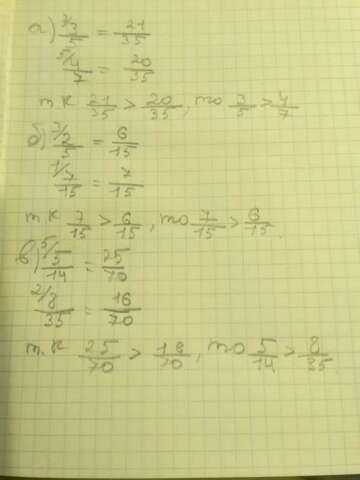 а) ⁷/ 3/5 = 21/35
⁵/ 4/7 = 20/35
т к 21/35 > 20/35, то 3/5 > 4/7
б) ³/ 2/5 = 6/15
¹/ 7/15 = 7/15
т к 7/15 > 6/15, то 7/15 > 6/15
в) ⁵/ 5/14 = 25/70
²/ 8/35 = 16/70
т. к 25/70 > 16/70, то 5/14 > 8/35